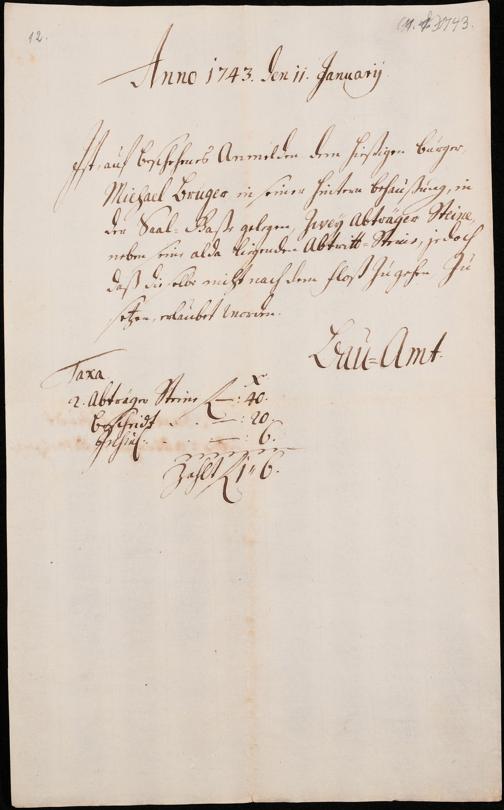 12.
1743.
Anno 1743. den 11. January
Ist, auf beschehenes Anmelden dem hiesigen burger,
Michael Bruger in seiner hintern behaußung, in
der Saal-Gaße gelegen, Zwey Abträger Steine,
neben eine alda ligenden Abtritt-Stein, jedoch
daß dieselbe nicht nach dem floß Zugehen, Zu
setzen, erlaubet worden.
Bau-Amt.
Taxa
2. Abträger Steine — : 40.
Bescheidt — : 20
— : 6.
Zahlt 1 " 6.